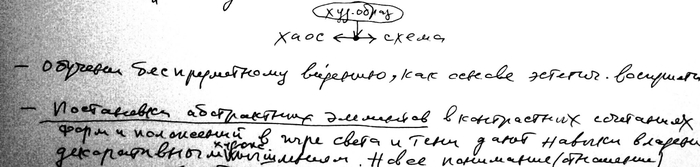 худ. образ
хаос ↔ схема
— обучение беспредметному видению, как основе эстетич. восприятия
— Постановка абстрактных элементов в контрастных сочетаниях
форм и положений в игре света и тени дают навыки владения
декоративным мышлением. Новое понимание (отношение)